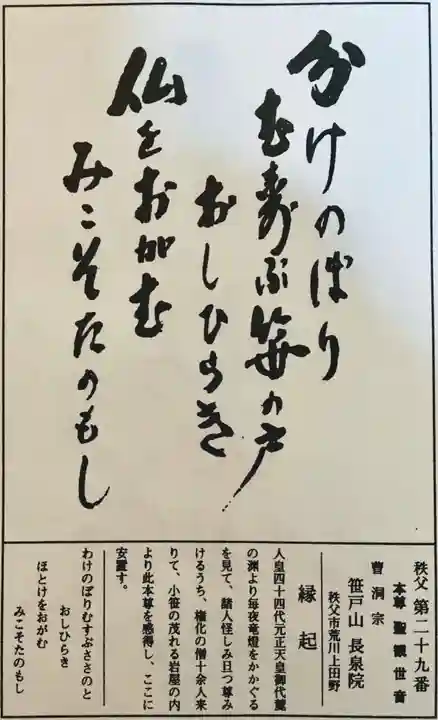 分けのぼり
むすぶ笹の戸
おしひらき
仏をおがむ
みこそたのもし
秩父 第二十九番
本尊 聖観世音
曹洞宗
笹戸山 長泉院
秩父市荒川上田野
縁起
人皇四十四代元正天皇御代龍
の渊より毎夜竜燈をかかぐる
を見て、諸人怪しみ且つ尊み
けるうち、権化の僧十余人来
りて、小笹の茂れる岩屋の内
より此本尊を感得し、ここに
安置す。
わけのぼりむすぶささのと
おしひらき
ほとけをおがむ
みこそたのもし